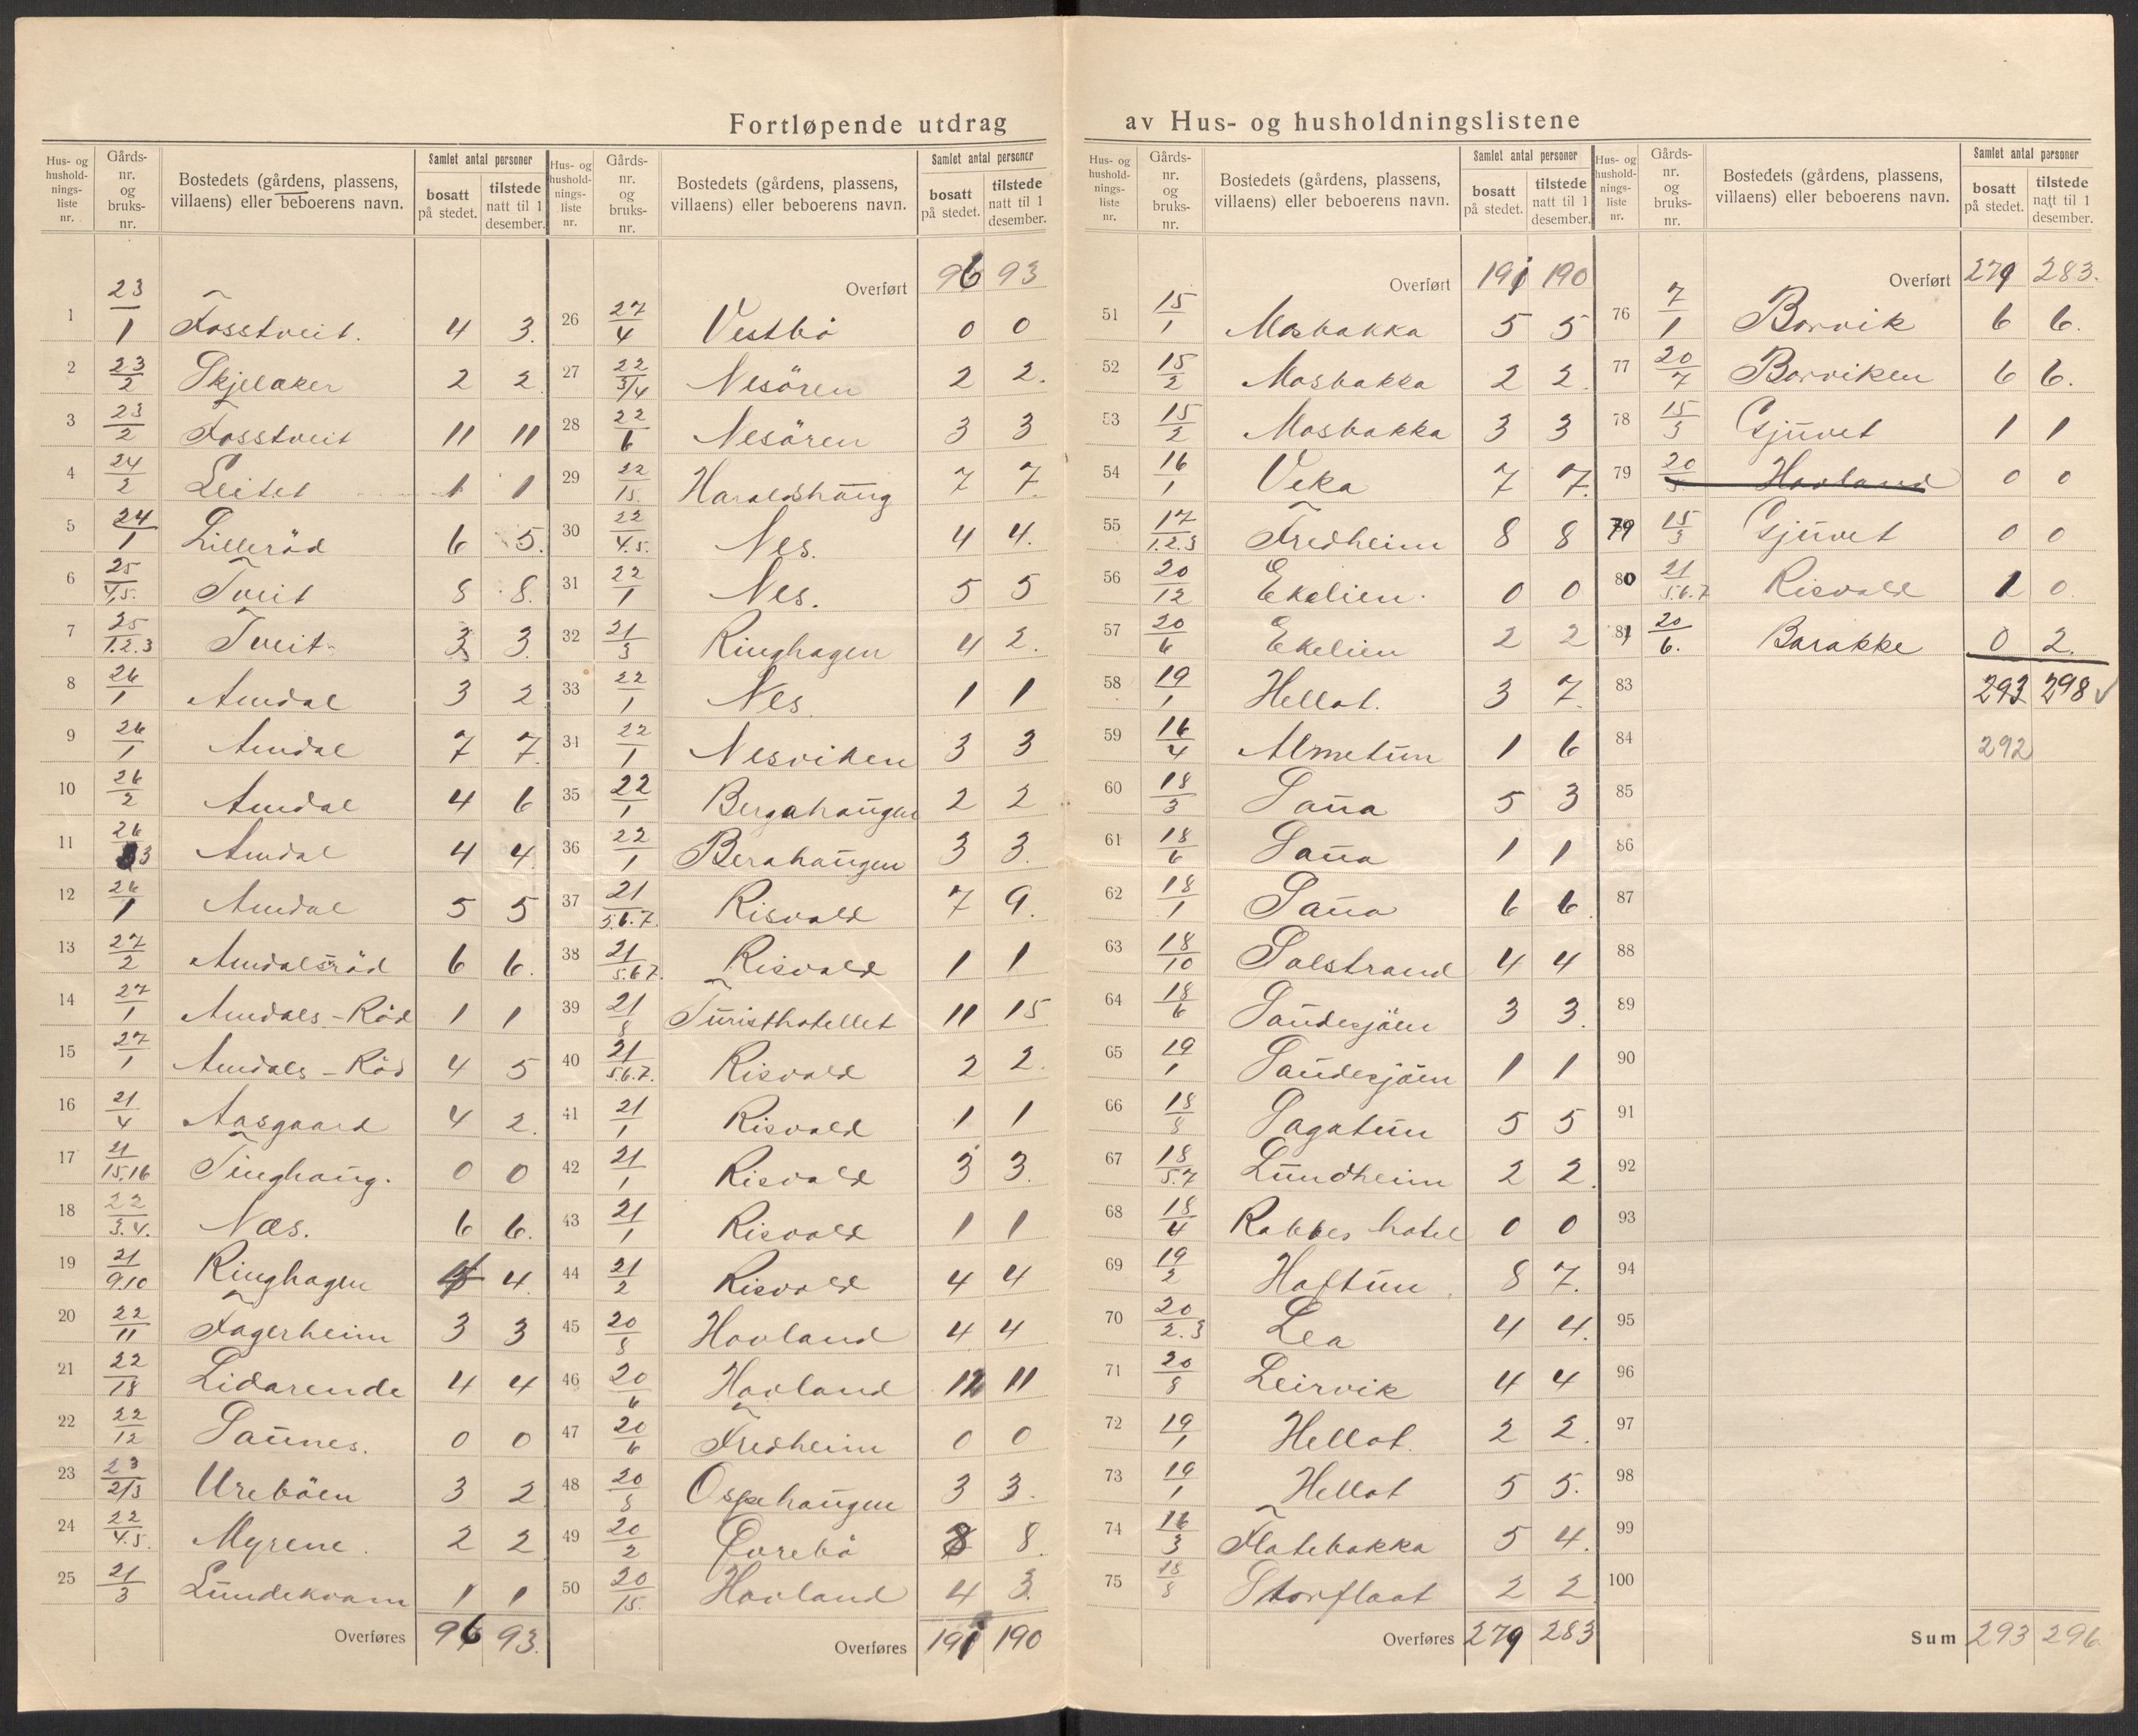 Fortløpende utdrag av Hus- og husholdningslistene
Hus- og husholdnings- liste nr. | Gårds- nr. og bruks- nr. | Bostedets (gårdens, plassens, villaens) eller beboerens navn. | Samlet antal personer bosatt på stedet. | tilstede natt til 1 desember.
1 23/1 Fosstveit. 4 3.
2 23/2 Skjelaker 2 2
3 23/2 Fosstveit 11 11
4 24/2 Leitet 1 1
5 24/1 Lilleröd 6 5.
6 25/4,5. Tveit 8 8.
7 25/1.2.3 Tveit 3 3.
8 26/1 Amdal 3 2
9 26/1 Amdal 7 7.
10 26/2 Amdal 4 6
11 26/3 Amdal 4 4
12 26/1 Amdal 5 5
13 27/2 Amdalsröd 6 6.
14 27/1 Amdals-Röd 1 1
15 27/1 Amdals-Röd 4 5
16 21/4 Aasgaard 4 2.
17 21/15,16 Tinghaug. 0 0
18 22/3.4. Næs. 6 6.
19 21/9.10 Ringhagen 4 4
20 22/11 Fagerheim 3 3
21 22/18 Lidarende 4 4
22 22/12 Saunes. 0 0
23 23/2/3 Ureböen 3 2
24 22/4.5. Myrene. 2 2
25 21/3 Lundekvam 1 1
Overføres 96 93.
Hus- og husholdnings- liste nr. | Gårds- nr. og bruks- nr. | Bostedets (gårdens, plassens, villaens) eller beboerens navn. | Samlet antal personer bosatt på stedet. | tilstede natt til 1 desember.
Overført 96 93
26 27/4 Vestbö 0 0
27 22/3/4 Nesören 2 2.
28 22/6 Nesören 3 3
29 22/15. Haraldshaug 7 7.
30 22/4.5. Nes. 4 4.
31 22/1 Nes. 5 5
32 21/3 Ringhagen 4 2.
33 22/1 Nes 1 1
34 22/1 Nesviken 3 3
35 22/1 Bergahaugen 2 2
36 22/1 Berahaugen 3 3.
37 21/5.6.7. Risvold 7 9.
38 21/5.6.7. Risvold 1 1
39 21/8 Turisthotellet 11 15
40 21/5.6.7. Risvold 2 2.
41 21/1 Risvold 1 1
42 21/1 Risvold 3 3.
43 21/1 Risvold 1 1
44 21/2 Risvold 4 4
45 20/8 Hovland 4 4
46 20/6 Hovland 12 11
47 20/6 Fredheim 0 0
48 20/8 Ospehaugen 3 3.
49 20/2 Qvrebö 8 8.
50 20/15. Hovland 4 3.
Overføres 191 190
Hus- og husholdnings- liste nr. | Gårds- nr. og bruks- nr. | Bostedets (gårdens, plassens, villaens) eller beboerens navn. | Samlet antal personer bosatt på stedet. | tilstede natt til 1 desember.
Overført 191 190
51 15/1 Mosbakka 5 5
52 15/2 Mosbakka 2 2.
53 15/2 Mosbakka 3 3
54 16/1 Veka 7 7.
55 17/1.2.3 Fredheim 8 8
56 20/12 Ekelien. 0 0
57 20/6 Ekelien 2 2
58 19/1 Hellot. 3 7.
59 16/4 Almetun 1 6
60 18/3 Saua 5 3
61 18/6 Saua 1 1
62 18/1 Saua 6 6.
63 18/10 Solstrand 4 4
64 18/6 Saudesjöen 3 3.
65 19/1 Saudesjöen 1 1
66 18/8 Sagatun 5 5
67 18/5.7 Lundheim 2 2.
68 18/4 Rabbes hotel 0 0
69 19/2 Haftun. 8 7.
70 20/2.3 Lea 4 4.
71 20/8 Leirvik 4 4
72 19/1 Hellot. 2 2.
73 19/1 Hellot 5 5.
74 16/3 Flatebakka 5 4.
75 18/8 Storflaat 2 2
Overføres 279 283
Hus- og husholdnings- liste nr. | Gårds- nr. og bruks- nr. | Bostedets (gårdens, plassens, villaens) eller beboerens navn. | Samlet antal personer bosatt på stedet. | tilstede natt til 1 desember.
Overført 279 283.
76 7/1 Borvik 6 6.
77 20/7 Borviken 6 6.
78 15/3 Gjuvet 1 1
79 20/5. Hovland 0 0
79 15/3 Gjuvet 0 0
80 21/5.6.7 Risvold 1 0.
81 20/6. Barakke 0 2.
83 293 298 ✓
84 292
85
86
87
88
89
90
91
92
93
94
95
96
97
98
99
100
Sum 293 296